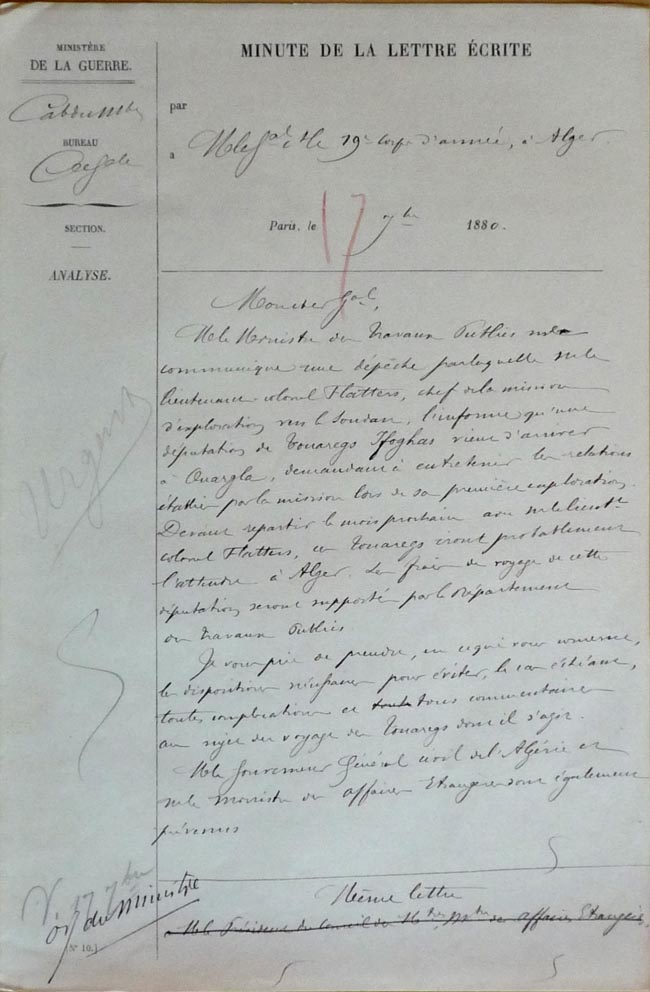 MINISTÈRE
DE LA GUERRE.
BUREAU
SECTION.
ANALYSE.
Urgent
MINUTE DE LA LETTRE ÉCRITE
par
a M le Gal Ct le 19e corps d'armée, à Alger.
Paris, le 17 7bre 1880.
Mon cher Gal,
M le Ministre des Travaux Publics me
communique une dépêche par laquelle M le
lieutenant colonel Flatters, chef de la mission
d'exploration vers le Soudan, l'informe qu'une
députation de Touaregs Ifoghas vient d'arriver
à Ouargla, demandant à entretenir les relations
établies par la mission lors de sa première exploration.
Devant repartir le mois prochain avec M le lieut-
colonel Flatters, ces Touaregs iront probablement
l'attendre à Alger. Les frais de voyage de cette
députation seront supportés par le Département
des Travaux Publics.
Je vous prie de prendre, en ce qui vous concerne,
les dispositions nécessaires pour éviter, le cas échéant,
toutes complications et toute tous commentaires
au sujet du voyage des Touaregs dont il s'agit.
M le Gouverneur Général civil de l'Algérie et
M le Ministre des affaires Etrangères sont également
prévenus
V. 17 7bre
du Ministre
N° 10.
Même lettre
M le Président du Conseil des Mtres, Mtre des affaires Etrangères.